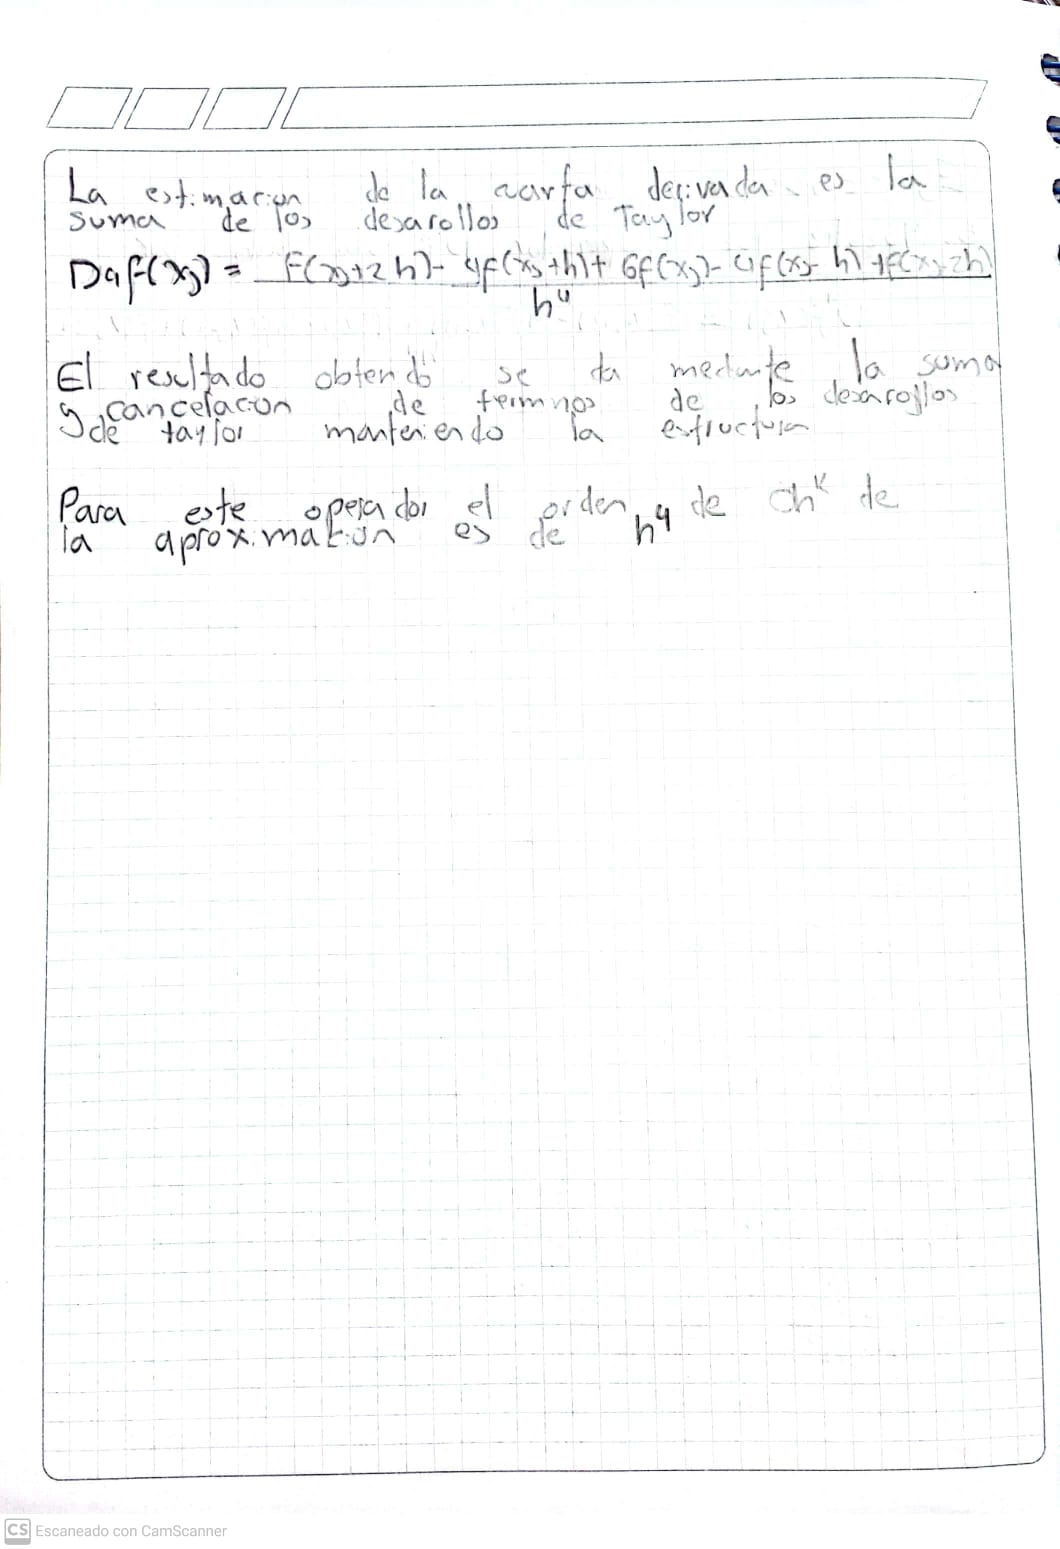 La estimacion de la cuarta derivada es la
suma de los desarollos de Taylor
D4f(xj) = F(xj+2h)- 4f(xj+h)+ 6f(xj)- 4f(xj-h)+f(xj-2h)
h4
El resultado obtendo se da mediante la suma
y cancelacion de terminos de los desarollos
de taylor manteniendo la estructura
Para este operador el orden de Ch^k de
la aproximation es de h4
CS Escaneado con CamScanner